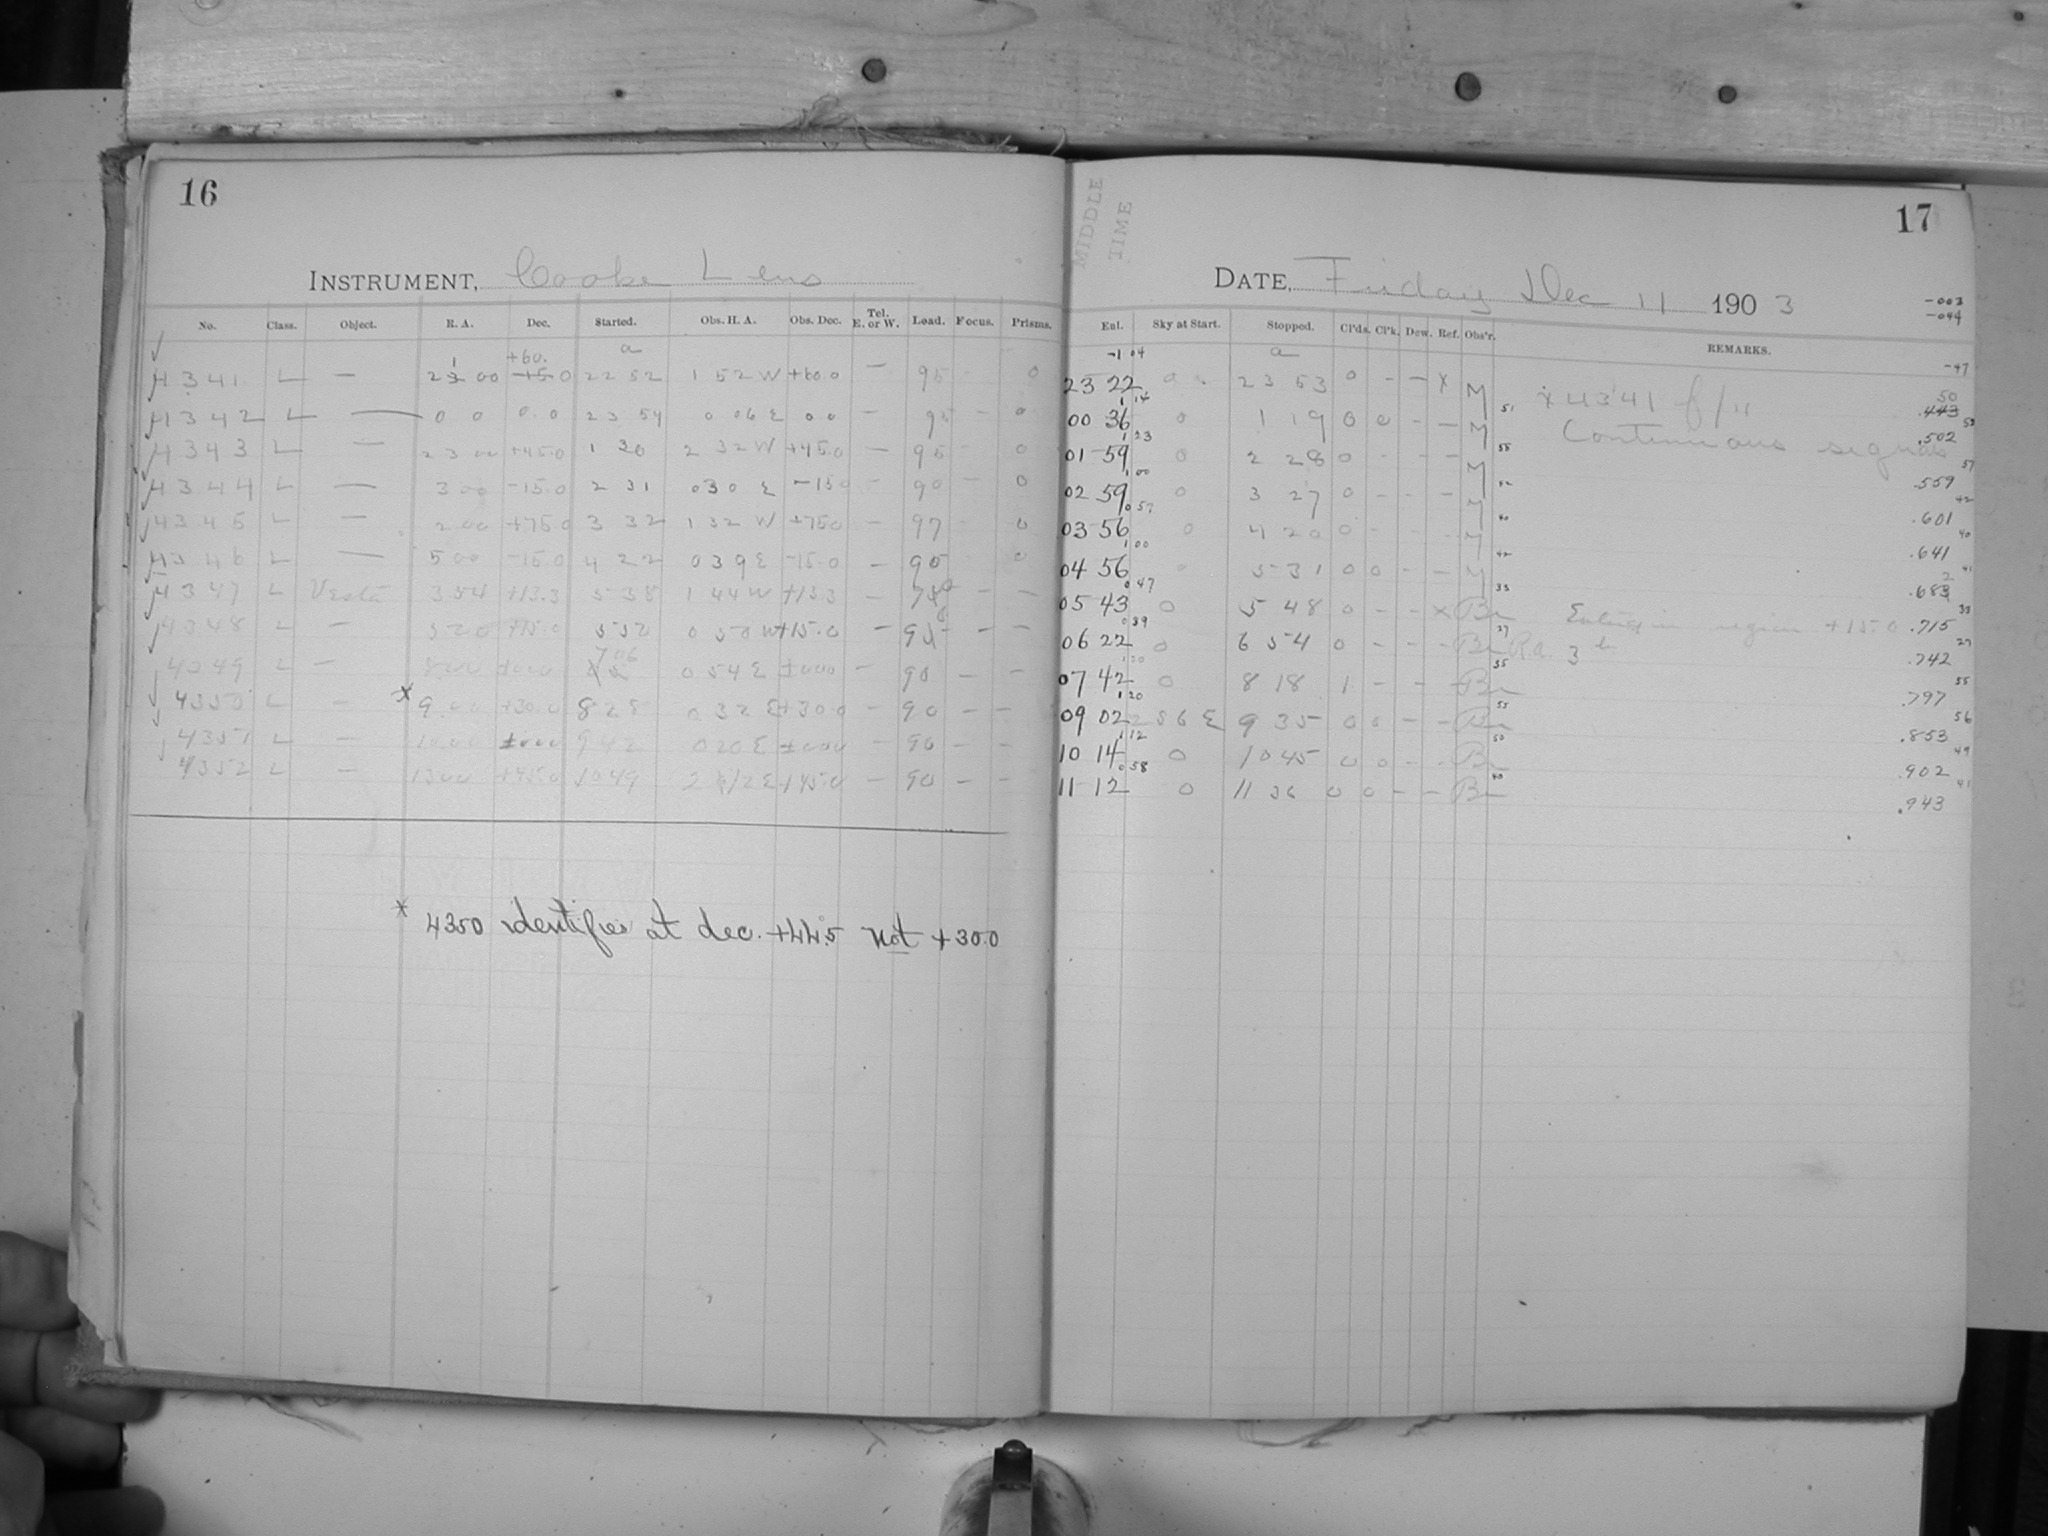 16
INSTRUMENT, Cooke Lens
No. Class. Object. R. A. Dec. Started. Obs. H. A. Obs. Dec. Tel. E. or W. Load. Focus. Prisms.
+60. a
4341 L — 23 00 22 52 1 52 W +60.0 — 95 0
4342 L — 0 0 0.0 23 54 0 06 E 00 — 95 - 0
4343 L — 23 00 +45.0 1 30 2 32 W +45.0 — 95 0
4344 L — 3 00 -15.0 2 31 0 30 E -15.0 - 90 - 0
4345 L — 2 00 +75.0 3 32 1 32 W +75.0 - 97 - 0
4346 L — 5 00 -15.0 4 22 0 39 E -15.0 - 90 0
4347 L Vesta 3 54 +13.3 5 38 1 44 W +13.3 - - -
4348 L - 5 20 +15.0 5 52 0 50 W +15.0 - - -
4349 L - 7 06 0 54 E - 90 - -
4350 L - * 9 00 +30.0 8 28 0 32 E +30.0 - 90 - -
4351 L - 9 42 0 20 E - 90 - -
4352 L - 13 00 +45.0 10 49 +45.0 - 90 - -
* 4350 identifies at dec. +44.5 not +30.0
MIDDLE
TIME
17
DATE, Friday Dec 11 1903
-003
-044
Enl. Sky at Start. Stopped. Cl'ds. Cl'k. Dew. Ref. Obs'r. REMARKS.
-1 04 a -47
23 22 23 53 0 - - x M x 4341 f/11 50
1 14 51 .443 58
00 36 0 1 19 0 0 - - M Continuous .502
1 23 55 57
01 59 0 2 28 0 - - - M .559
1 00 42 42
02 59 0 3 27 0 - - - M .601
0 57 40 40
03 56 0 4 20 0 - - - M .641
1 00 42 41
04 56 5 31 0 0 - - M .683
0 47 33
05 43 0 5 48 0 - - x Br region +15.0 .715 33
0 39 27 27
06 22 0 6 54 0 - - - Br R.a. 3h .742
55 55
07 42 0 8 18 1 - - - Br .797
1 20 55 56
09 02 2 56 E 9 35 0 0 - - Br .853
1 12 50 49
10 14 0 10 45 0 0 - - Br .902
0 58 40 41
11 12 0 11 36 0 0 - - Br .943